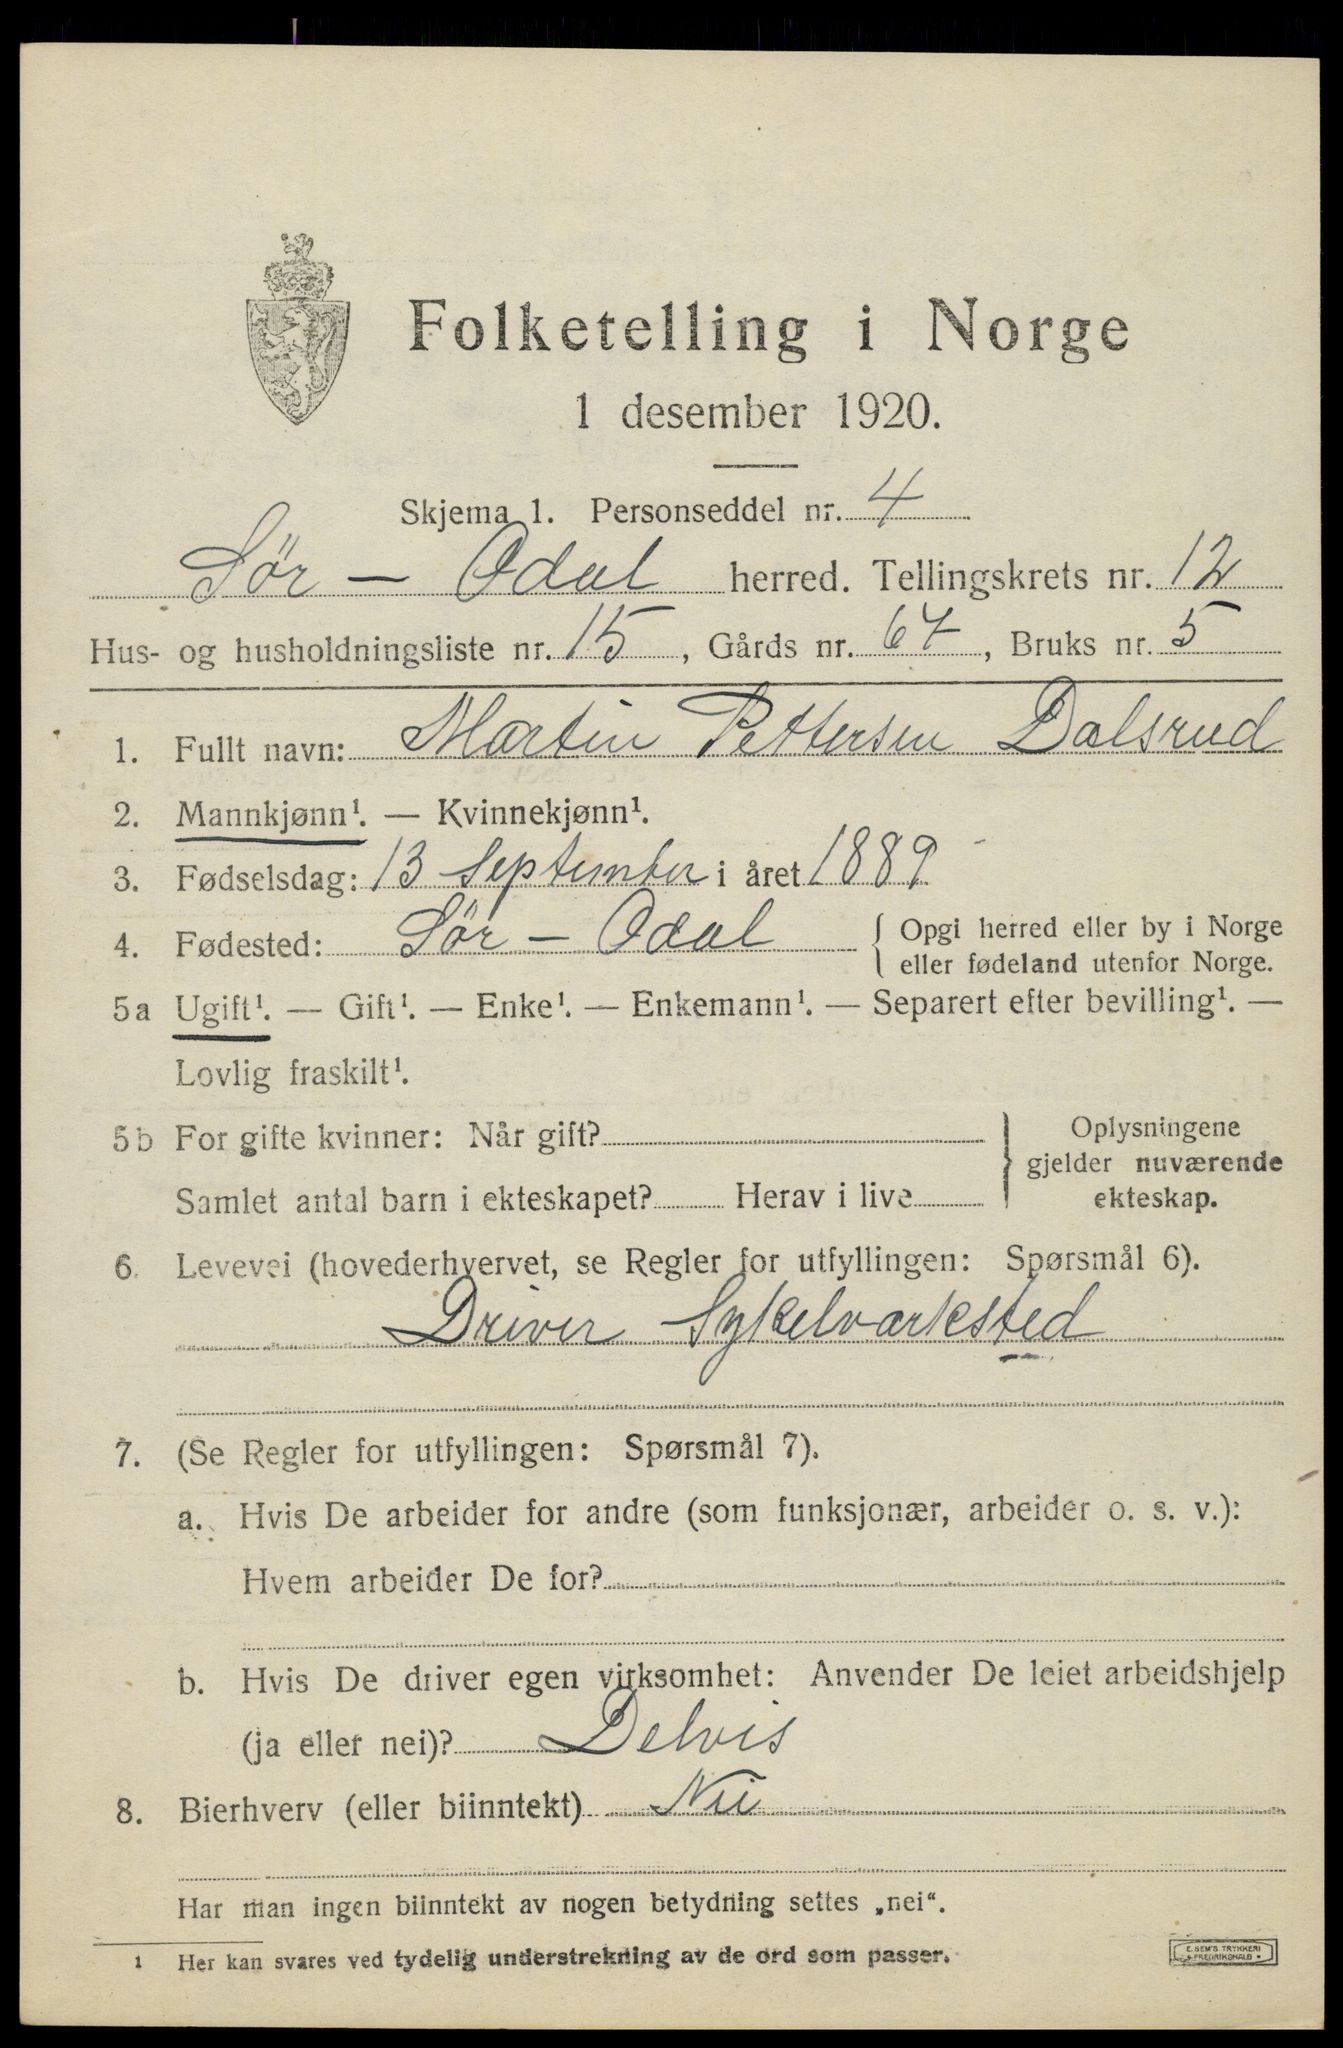 Folketelling i Norge
1 desember 1920.
Skjema 1. Personseddel nr. 4
Sør - Odal herred. Tellingskrets nr. 12
Hus- og husholdningsliste nr. 15, Gårds nr. 67, Bruks nr. 5
1. Fullt navn: Martin Pettersen Dalsrud
2. Mannkjønn¹. — Kvinnekjønn¹.
3. Fødselsdag: 13 September i året 1889
4. Fødested: Sør - Odal { Opgi herred eller by i Norge
eller fødeland utenfor Norge.
5a Ugift¹. — Gift¹. — Enke¹. — Enkemann¹. — Separert efter bevilling¹. —
Lovlig fraskilt¹.
5b For gifte kvinner: Når gift?
Samlet antal barn i ekteskapet? Herav i live
} Oplysningene
gjelder nuværende
ekteskap.
6. Levevei (hovederhvervet, se Regler for utfyllingen: Spørsmål 6).
Driver Sykelvarksted
7. (Se Regler for utfyllingen: Spørsmål 7).
a. Hvis De arbeider for andre (som funksjonær, arbeider o. s. v.):
Hvem arbeider De for?
b. Hvis De driver egen virksomhet: Anvender De leiet arbeidshjelp
(ja eller nei)? Delvis
8. Bierhverv (eller biinntekt) Nei
Har man ingen biinntekt av nogen betydning settes „nei“.
1 Her kan svares ved tydelig understrekning av de ord som passer.
E. SEM'S TRYKKERI
FREDRIKSHALD